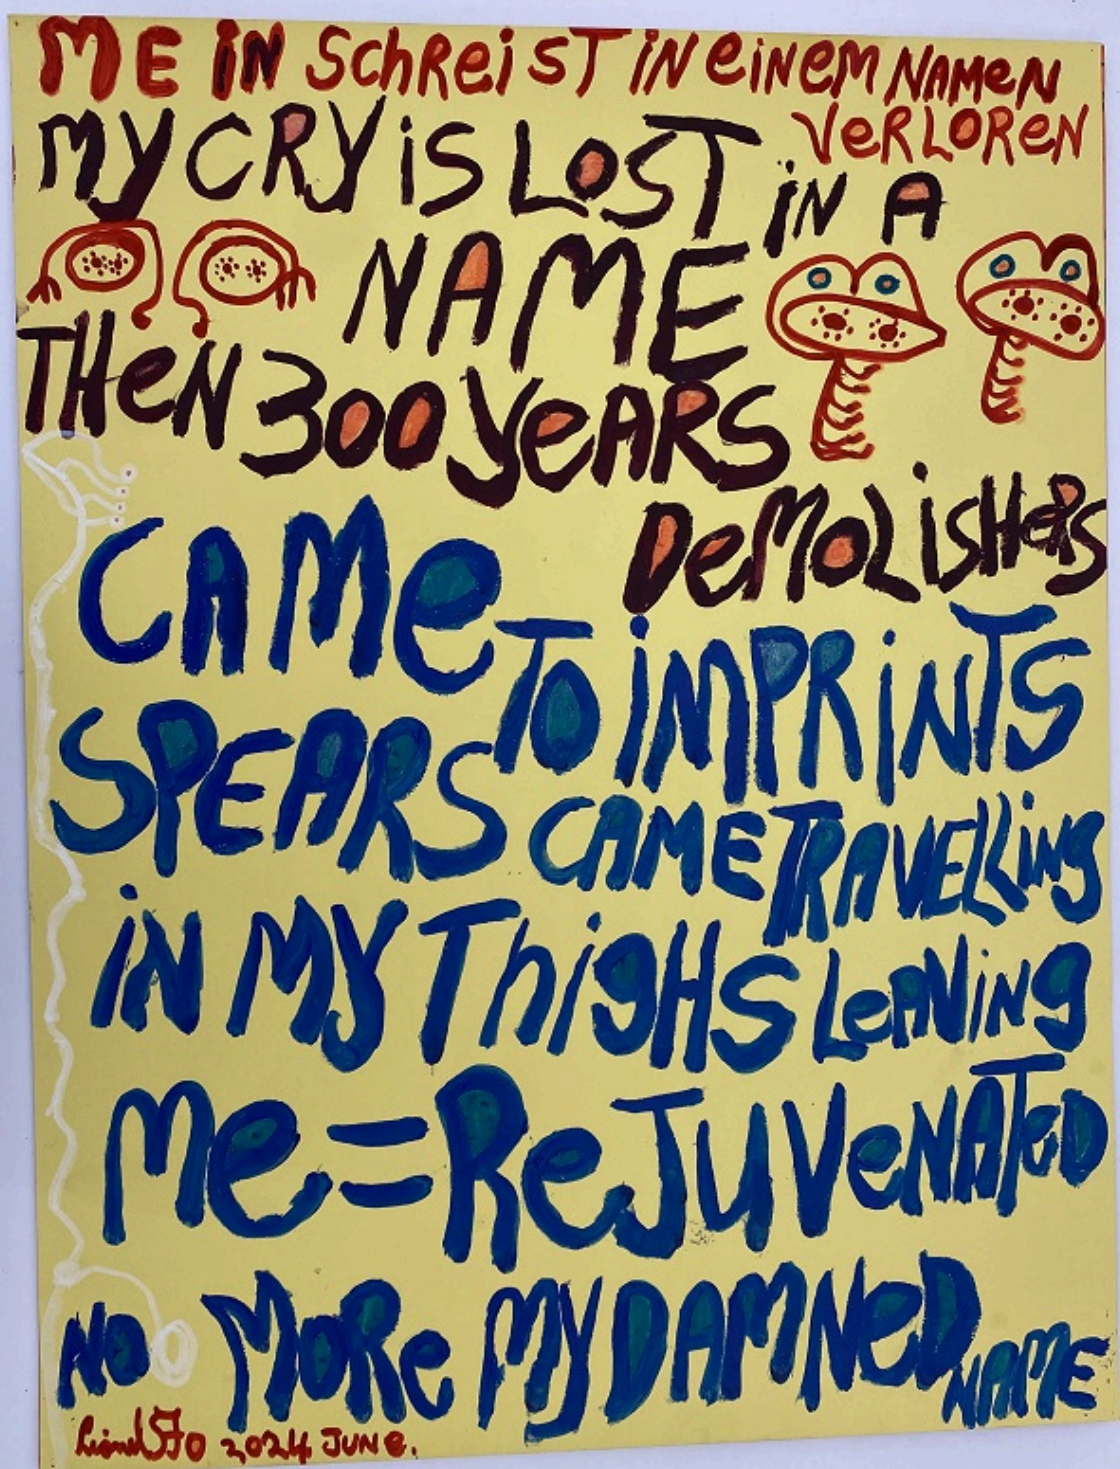 ME iN SchRei isT iN eiNem NAMeN
VeRLOReN
MY CRY iS LOST iN A
NAME
THeN 300 YeARS
DeMOLisHeRS
CAMe
TO iMPRiNTS
SPEARS CAME TRAVELLiNg
iN MY ThigHS LeAViNg
Me=ReJuVeNATeD
NO MORe MY DAMNeD NAME
2024 JUNe.